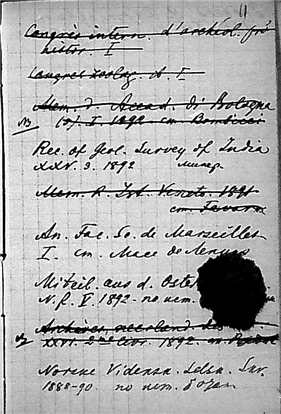 11
Congrès intern. d'archéol. pré
histor I
Congres zoolog. A I
Mem. d. Accad. di Bologna
(5) I 1892 см. Bombicci
Rec. of Geol. Survey of India
XXV. 3. 1892
Mem. R. Ist. Veneto. 1891
см
An. Fac. Sc. de Marseilles
I. см. Mace de
Mitteil. aus d. Oste
N.F. V. 1892 - no
Archives neerland. des
XXVI. 2me livr. 1892.
Norske Vidensk. Selsk.
1888-90. no